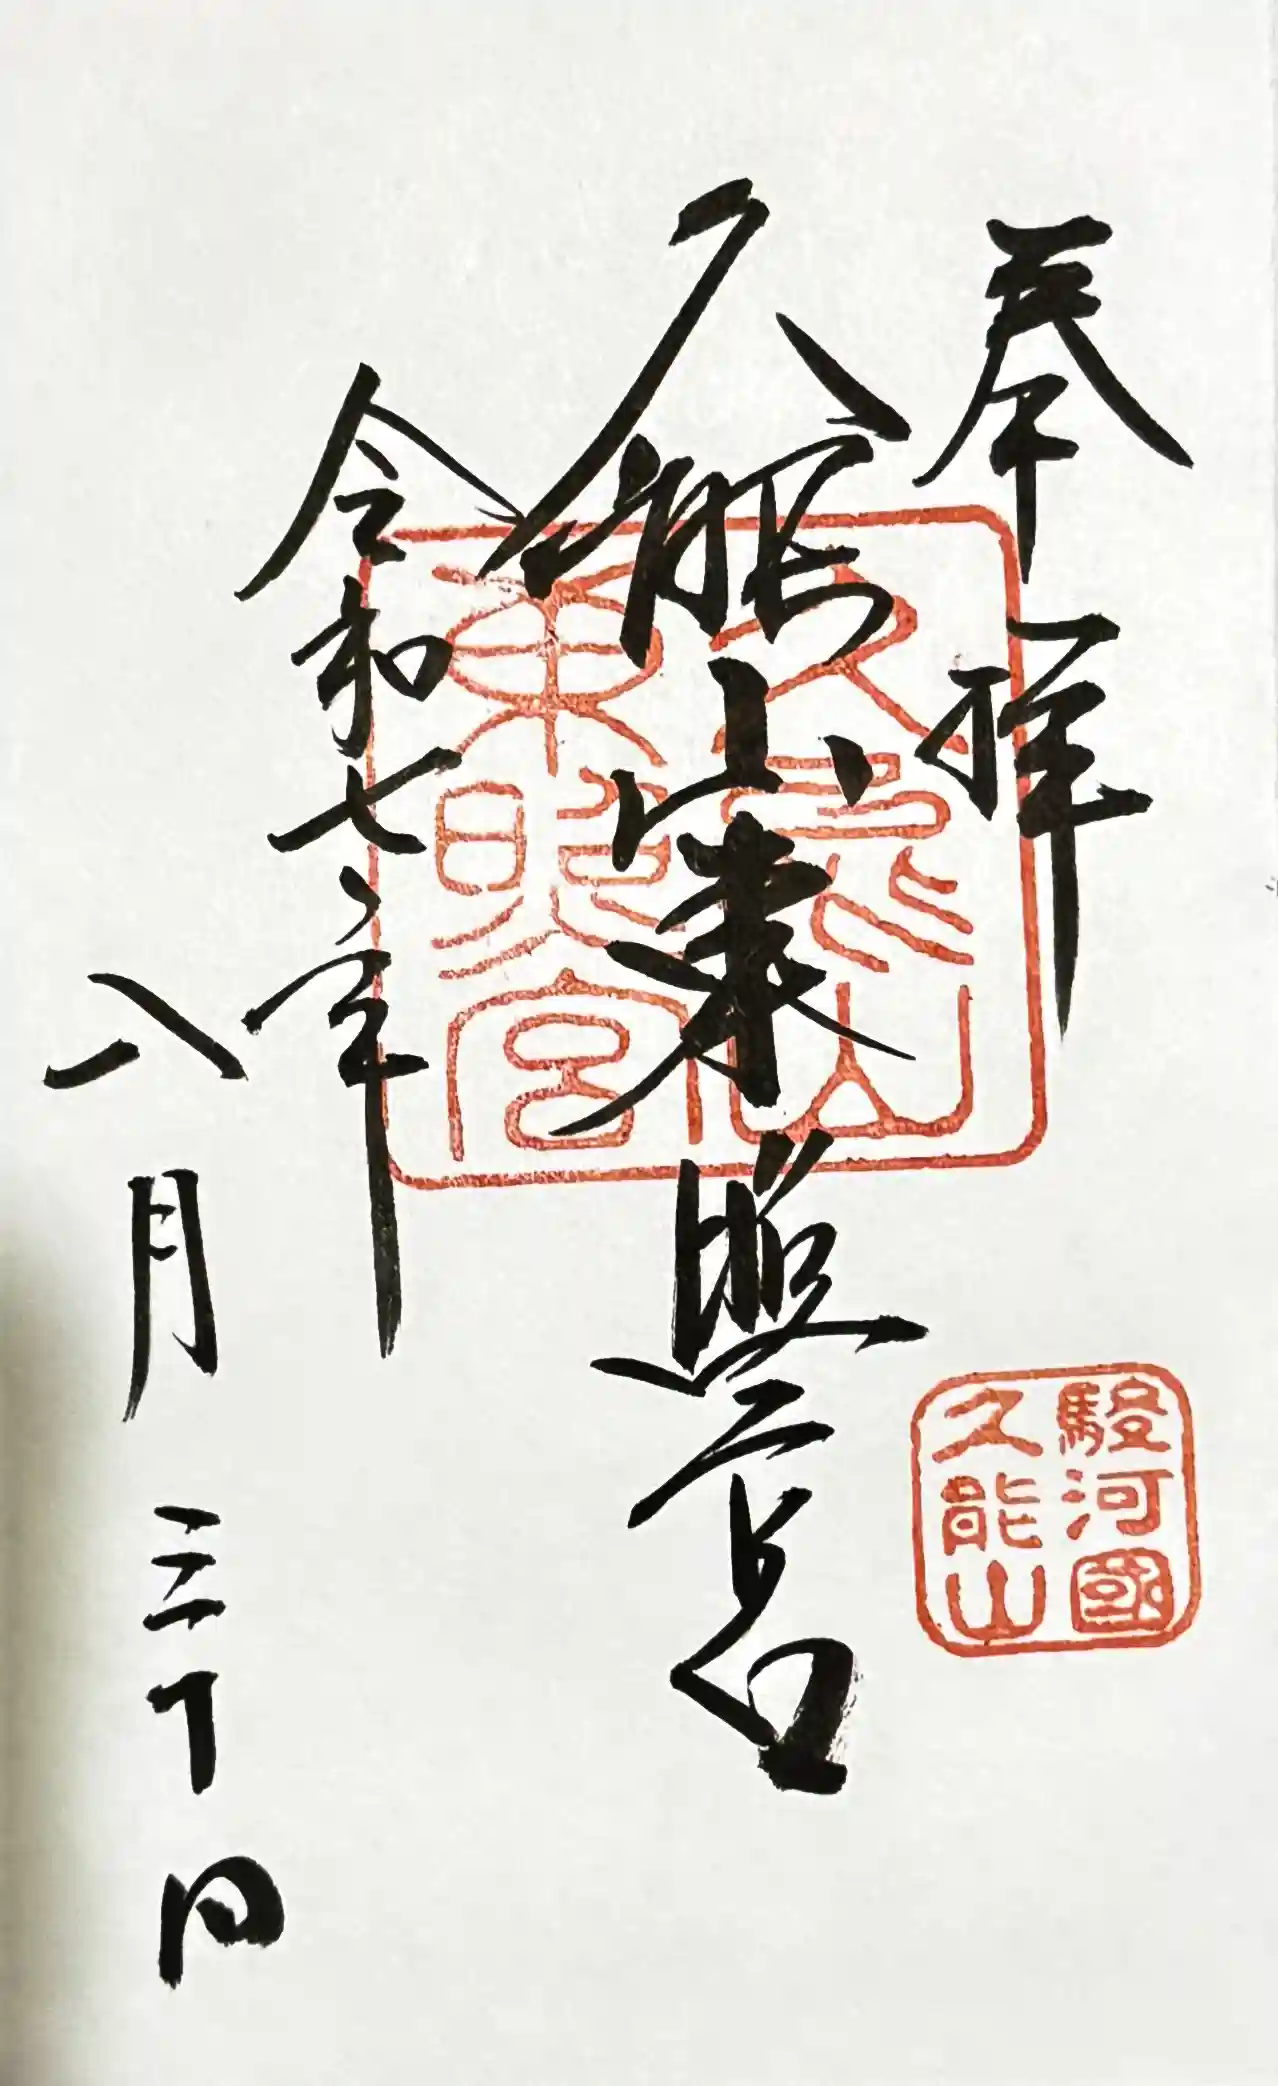 奉拝
駿河國
久能山
久能山東照宮
久能山
東照宮
令和七年
八月三十日